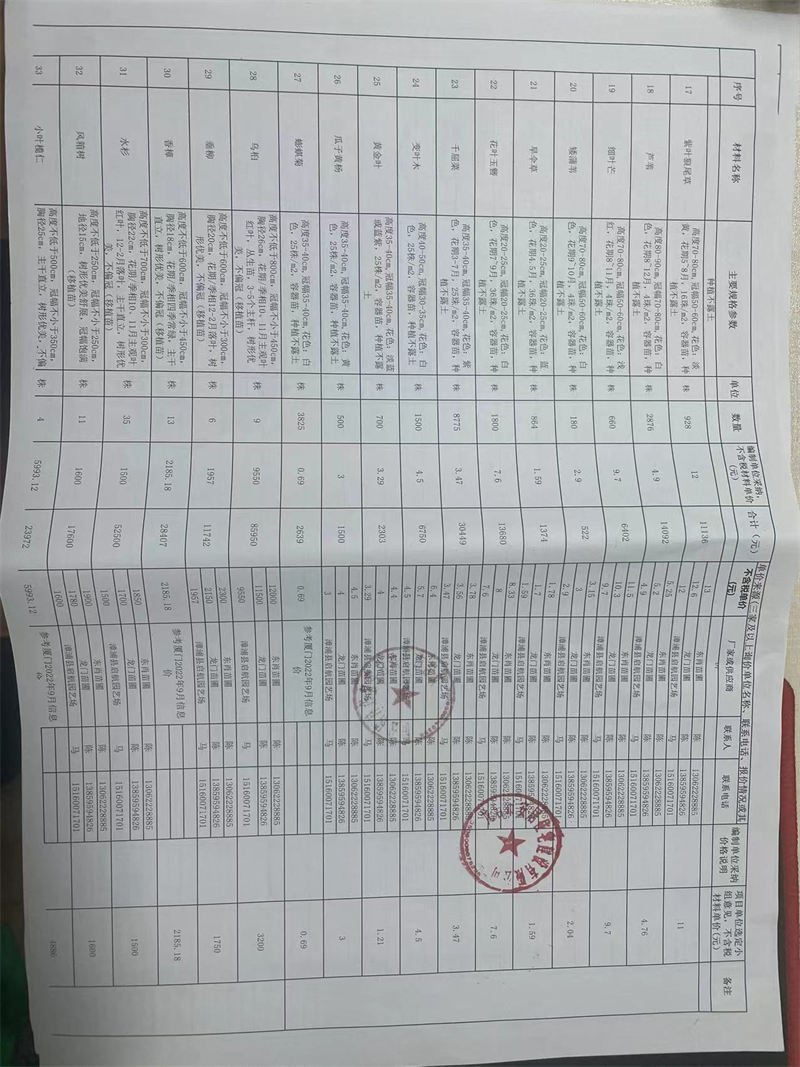 序号 材料名称 主要规格参数 单位 数量 编制单位采纳,不含税材料单价(元) 合计(元) 单价来源(三家及以上询价单位名称、联系电话、报价情况或其 编制单位采纳价格说明 项目单位选定小组意见,不含税材料单价(元) 备注
不含税单价(元) 厂家或供应商 联系人 联系电话
种植不露土
17 紫叶狼尾草 高度70-80cm, 冠幅50-60cm, 花色: 淡黄, 花期5-8月, 16株/m2, 容器苗, 种植不露土 株 928 12 11136 11
13
12.6 东肖苗圃 陈 13062228885
12 龙门苗圃 陈 13859594826
18 芦苇 高度80-90cm, 冠幅70-80cm, 花色: 白色, 花期8-12月, 4株/m2, 容器苗, 种植不露土 株 2876 4.9 14092 4.76
5.25 漳浦县启航园艺场 马 15160071701
5.2 东肖苗圃 陈 13062228885
4.9 龙门苗圃 陈 13859594826
19 细叶芒 高度70-80cm, 冠幅50-60cm, 花色: 浅红, 花期8-11月, 4株/m2, 容器苗, 种植不露土 株 660 9.7 6402 9.7
11.5 漳浦县启航园艺场 马 15160071701
10.3 东肖苗圃 陈 13062228885
9.7 龙门苗圃 陈 13859594826
20 矮蒲苇 高度70-80cm, 冠幅50-60cm, 花色: 白色, 花期9-10月, 4株/m2, 容器苗, 种植不露土 株 180 2.9 522 2.04
3.15 漳浦县启航园艺场 马 15160071701
3 东肖苗圃 陈 13062228885
2.9 龙门苗圃 陈 13859594826
21 旱伞草 高度20-25cm, 冠幅20-25cm, 花色: 蓝色, 花期4-5月, 36株/m2, 容器苗, 种植不露土 株 864 1.59 1374 1.59
1.78 漳浦县启航园艺场 马 15160071701
1.7 东肖苗圃 陈 13062228885
1.59 龙门苗圃 陈 13859594826
22 花叶玉簪 高度20-25cm, 冠幅20-25cm, 花色: 白色, 花期7-9月, 36株/m2, 容器苗, 种植不露土 株 1800 7.6 13680 7.6
8.33 漳浦县启航园艺场 马 15160071701
8 东肖苗圃 陈 13062228885
7.6 龙门苗圃 陈 13859594826
23 千屈菜 高度35-40cm, 冠幅35-40cm, 花色: 紫色, 花期3-7月, 25株/m2, 容器苗, 种植不露土 株 8775 3.47 30449 3.47
3.78 漳浦县启航园艺场 马 15160071701
3.56 东肖苗圃 陈
3.47 龙门苗圃 陈
24 变叶木 高度40-50cm, 冠幅30-35cm, 花色: 白色, 25株/m2, 容器苗, 种植不露土 株 1500 4.5 6750 4.5
6.4 漳浦县启航园艺场 马 15160071701
5.7 东肖苗圃 陈 13062228885
4.5 龙门苗圃 陈 13859594826
25 黄金叶 高度35-40cm, 冠幅35-40cm, 花色: 淡蓝或蓝紫, 25株/m2, 容器苗, 种植不露土 株 700 3.29 2303 1.21
4.4 漳浦县启航园艺场 马 15160071701
4 东肖苗圃 陈 13062228885
3.29 龙门苗圃 陈 13859594826
26 瓜子黄杨 高度35-40cm, 冠幅35-40cm, 花色: 黄色, 25株/m2, 容器苗, 种植不露土 株 500 3 1500 3
4.5 漳浦县启航园艺场 马 15160071701
4 东肖苗圃 陈 13062228885
3 龙门苗圃 陈 13859594826
27 蟛蜞菊 高度35-40cm, 冠幅35-40cm, 花色: 白色, 25株/m2, 容器苗, 种植不露土 株 3825 0.69 2639 0.69 参考厦门2022年9月信息价 0.69
28 乌桕 高度不低于800cm, 冠幅不小于450cm, 胸径26cm, 花期/季相10、11月主观叶红叶, 丛生苗, 3-5个主杆, 树形优美, 不偏冠(移植苗) 株 9 9550 85950 3200
12000 东肖苗圃 陈 13062228885
11500 龙门苗圃 陈 13859594826
9550 漳浦县启航园艺场 马 15160071701
29 垂柳 高度不低于600cm, 冠幅不小于300cm, 胸径20cm, 花期/季相12-2月落叶, 树形优美, 不偏冠(移植苗) 株 6 1957 11742 1750
2300 东肖苗圃 陈 13062228885
2150 龙门苗圃 陈 13859594826
1957 漳浦县启航园艺场 马 15160071701
30 香樟 高度不低于600cm, 冠幅不小于450cm, 胸径18cm, 花期/季相四季常绿, 主干直立, 树形优美, 不偏冠(移植苗) 株 13 2185.18 28407 2185.18 参考厦门2022年9月信息价 2185.18
31 水杉 高度不低于700cm, 冠幅不小于300cm, 胸径22cm, 花期/季相10、11月主观叶红叶, 12-2月落叶, 主干直立, 树形优美, 不偏冠(移植苗) 株 35 1500 52500 1500
1850 东肖苗圃 陈 13062228885
1700 龙门苗圃 陈 13859594826
1500 漳浦县启航园艺场 马 15160071701
32 风箱树 高度不低于250cm, 冠幅不小于250cm, 地径15cm, 树形优美舒展, 冠幅饱满(移植苗) 株 11 1600 17600 1600
1900 东肖苗圃 陈 13062228885
1780 龙门苗圃 陈 13859594826
1600 漳浦县启航园艺场 马 15160071701
33 小叶榄仁 高度不低于500cm, 冠幅不小于350cm, 胸径25cm, 主干直立, 树形优美, 不偏 株 4 5993.12 23972 5993.12 参考厦门2022年9月信息价 4886